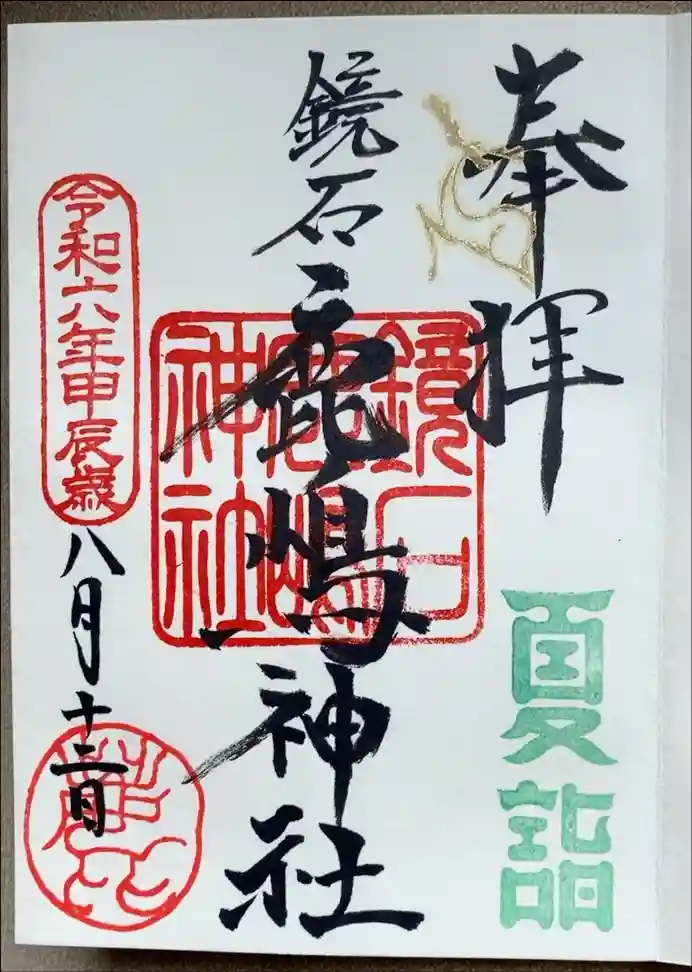 奉拝
夏詣
鏡石
鹿嶋神社
鏡石
鹿嶋
神社
令和六年甲辰歳
八月十二日